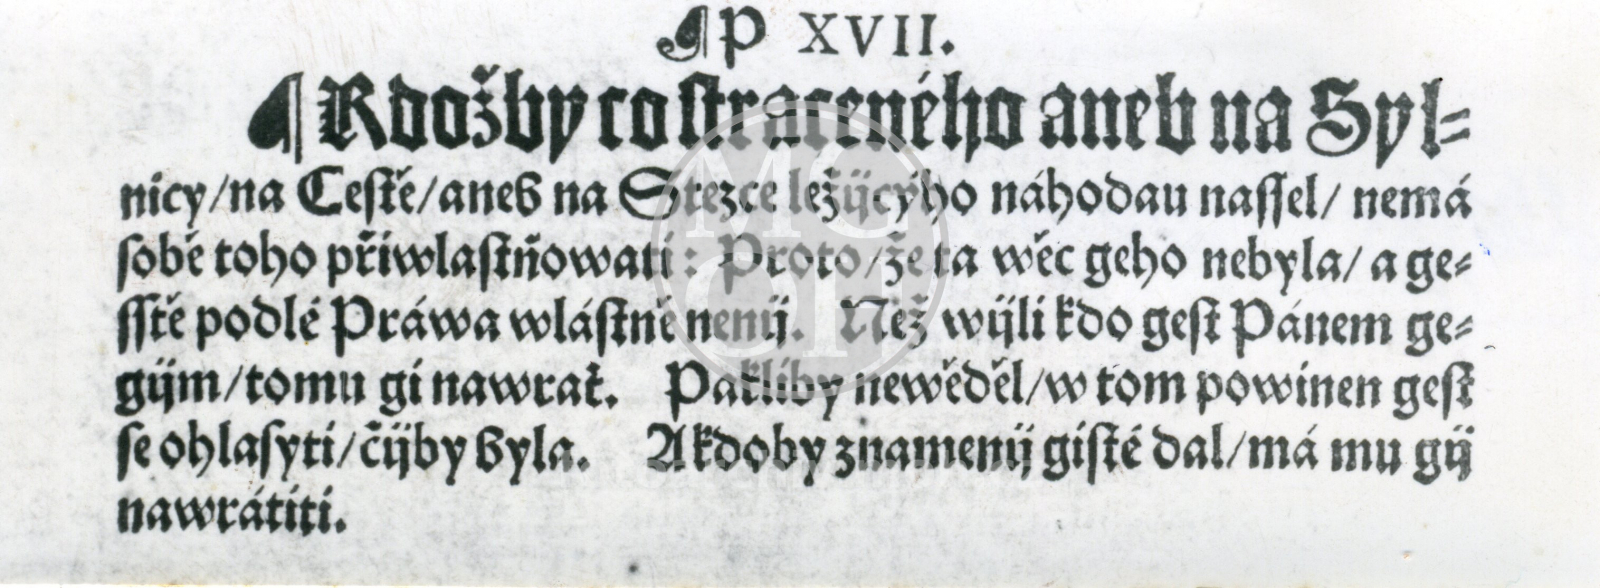 P XVII.
Kdožby co straceného aneb na Syl⸗
nicy/na Cestě/aneb na Stezce ležijcýho náhodau nassel/ nemá
sobě toho přiwlastňowati: Proto/že ta wěc geho nebyla/ a ge⸗
sstě podlé Práwa wlástně nenij. Než wijli kdo gest Pánem ge⸗
gijm/tomu gi nawrať. Pakliby newěděl/w tom powinen gest
se ohlasyti/čijby byla. A kdoby znamenij gisté dal/má mu gij
nawrátiti.